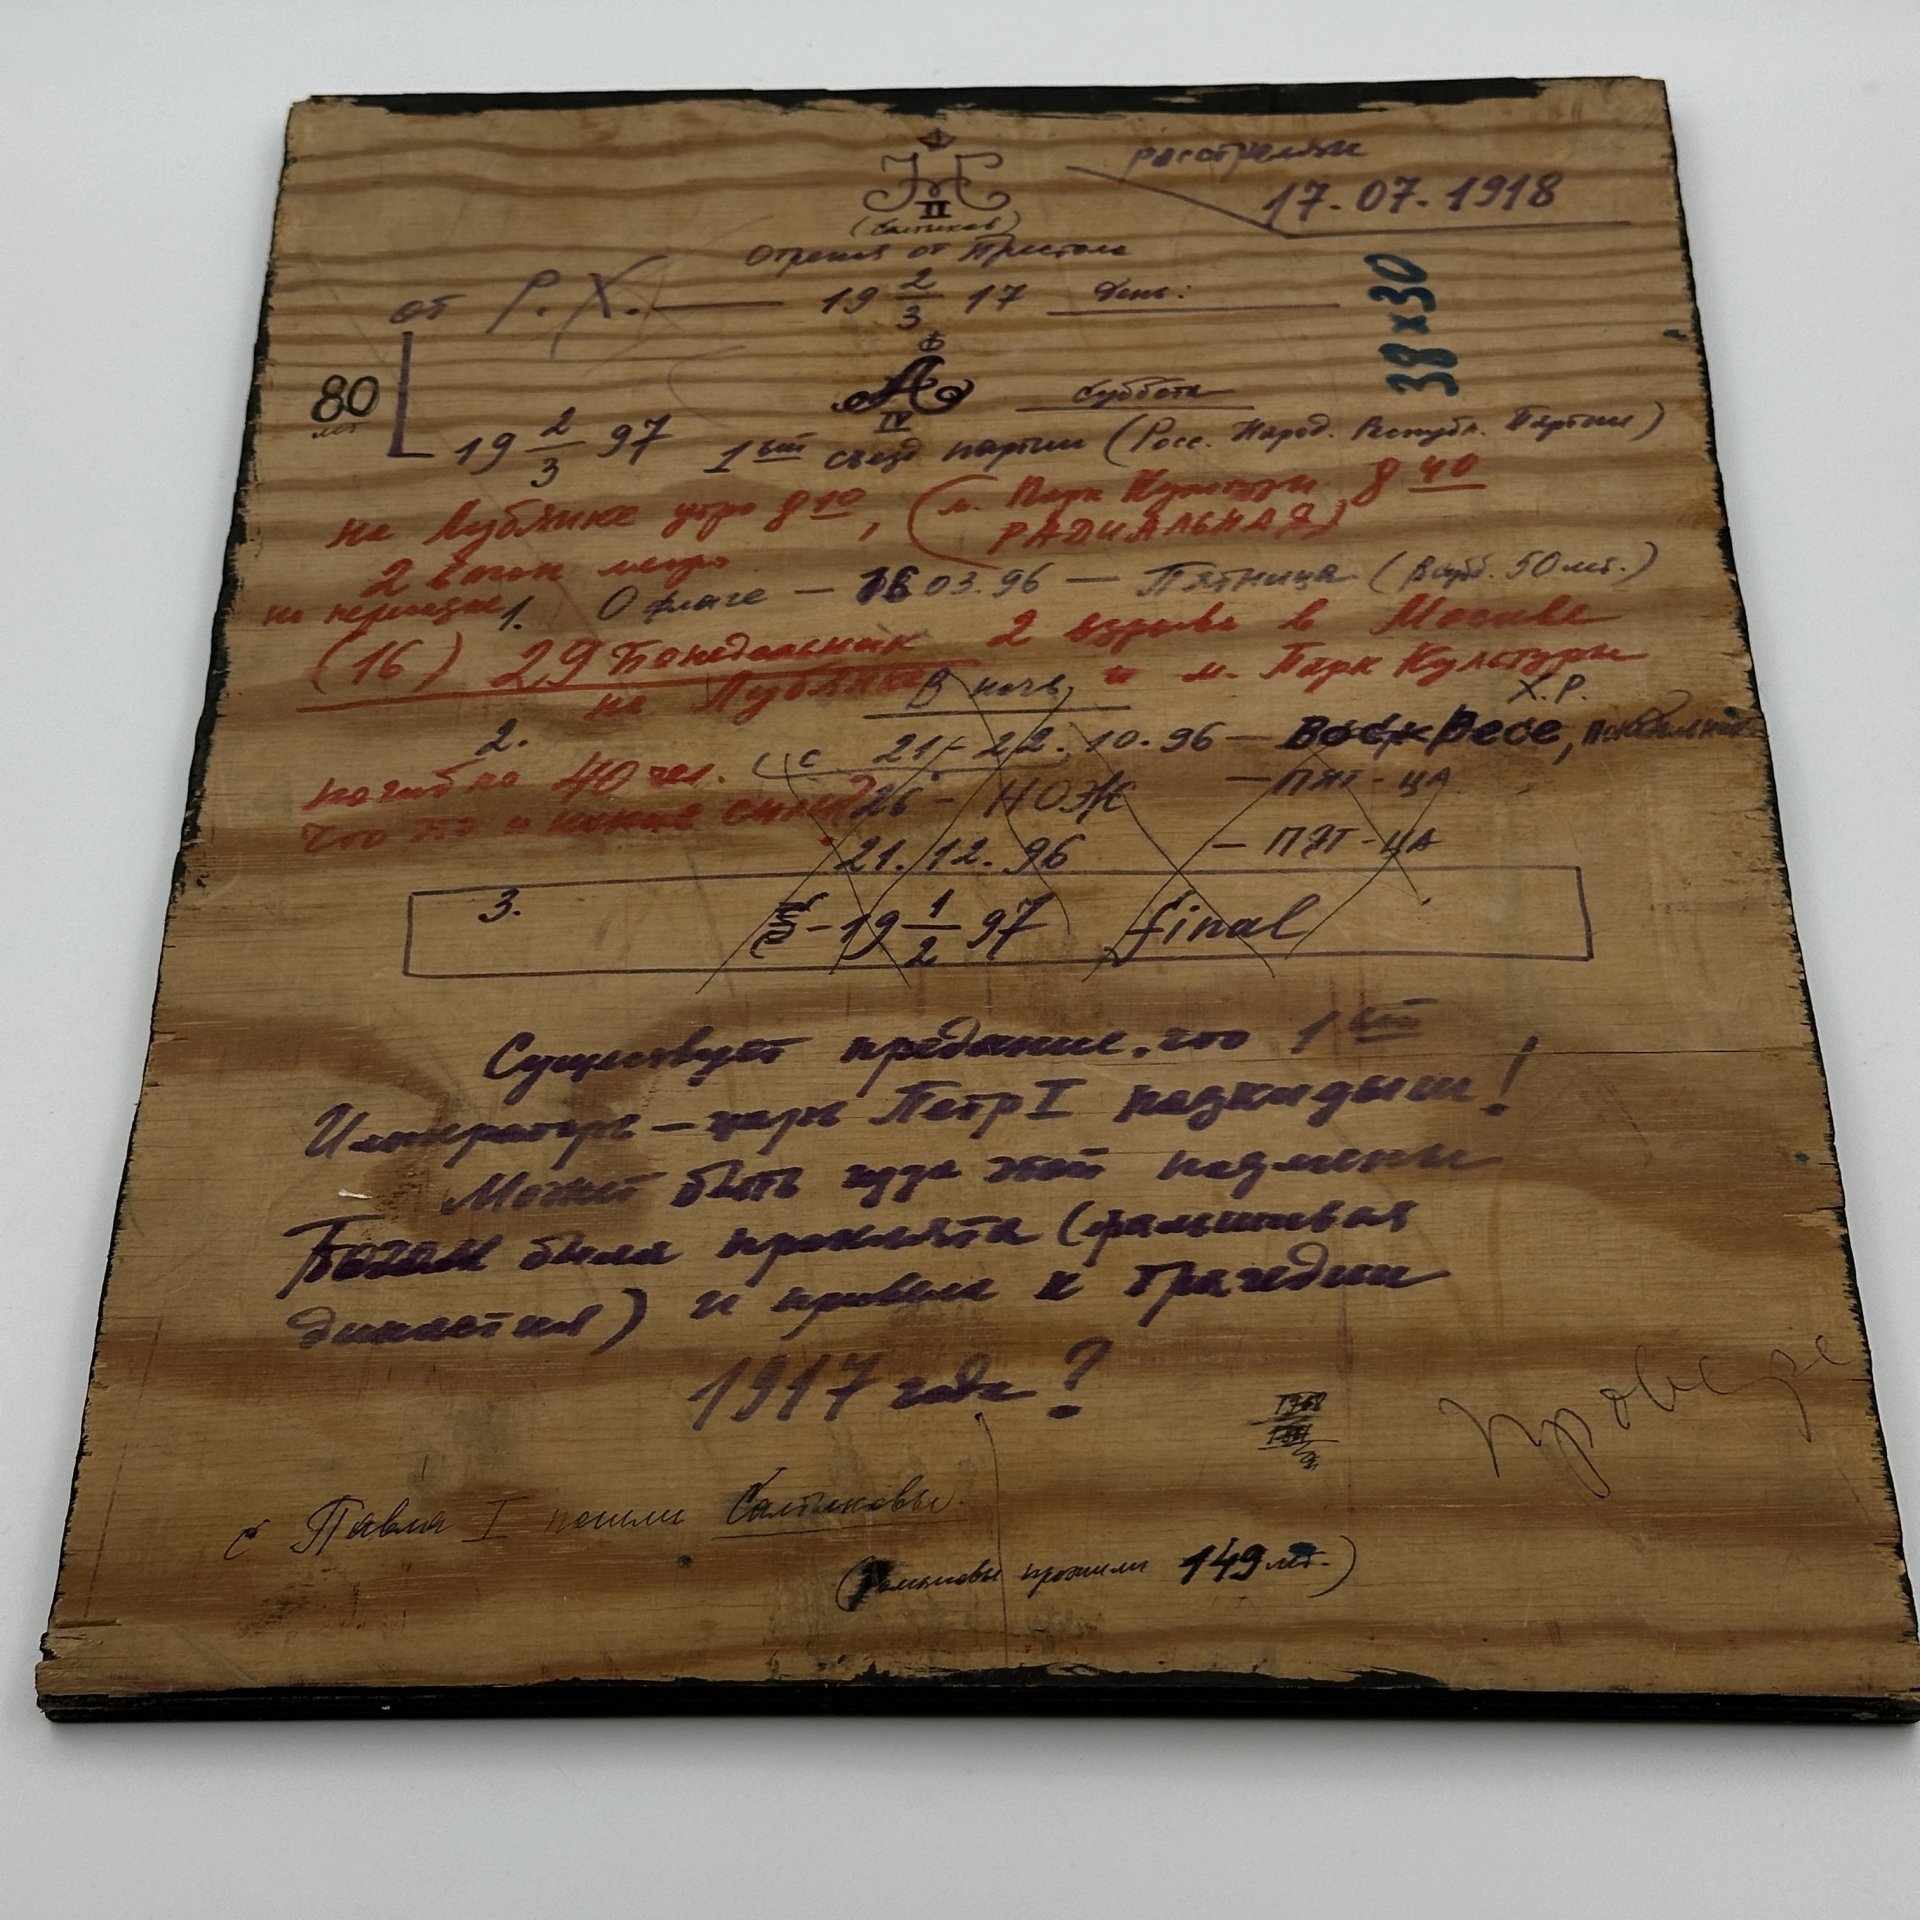 расстрелян
17.07.1918
II
(Салтыков)
Отрекся от Престола
от Р.Х. — 19 2/3 17 день:
38x30
80
лет
А
IV
суббота
19 2/3 97 1ый съезд партии (Росс. Народ. Республ. Партии)
на Лубянке утро 8 10, (м. Парк Культуры 8 40
РАДИАЛЬНАЯ)
2 вагон метро
1. О флаге — 03.96 — Пятница (50 лет.)
(16) 29 Понедельник 2 взрыва в Москве
на Лубянке и м. Парк Культуры
В ночь
Х.Р.
2.
(с 21-22.10.96 — ВоскРесе,
погибло 40 чел.
26 - НОЖ — ПЯТ-ЦА
Что это
21.12.96 — ПЯТ-ЦА
3. 19 1/2 97 final
Существует предание, что 1ый
Император – царь Петр I подкидыш!
Может быть чуда этой подмены
Богом была проклята (фальшивая
династия) и привела к трагедии
1917 года?
Провере
с Павла I пошли Салтыковы.
(Романовы прожили 149 лет.)